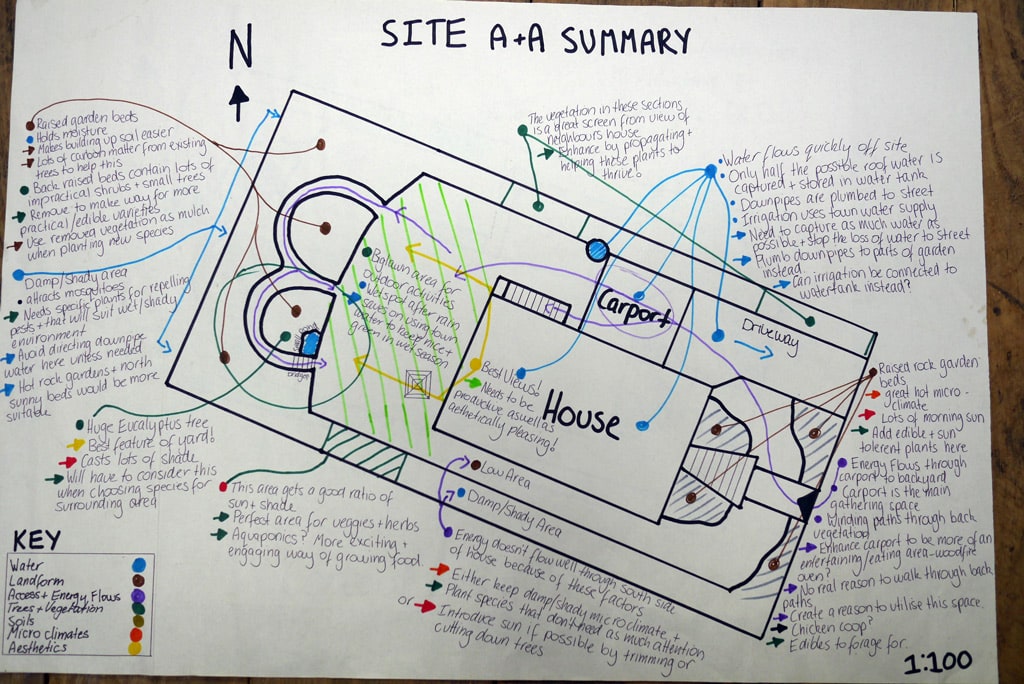 SITE A+A SUMMARY
N
Raised garden beds
Holds moisture
Makes building up soil easier
Lots of carbon matter from existing
trees to help this
Back raised beds contain lots of
impractical shrubs + small trees
Remove to make way for more
practical/edible varieties
Use removed vegetation as mulch
when planting new species
Damp/Shady area
attracts mosquitoes
Needs specific plants for repelling
pests + that will suit wet/shady
environment
Avoid directing downpipe
water here unless needed
Hot rock gardens + north
sunny beds would be more
suitable
Huge Eucalyptus tree
Best feature of yard!
Casts lots of shade
Will have to consider this
when choosing species for
surrounding area
KEY
Water
Landform
Access + Energy Flows
Trees + Vegetation
Soils
Micro climates
Aesthetics
This area gets a good ratio of
sun + shade
Perfect area for veggies + herbs
Aquaponics? More exciting +
engaging way of growing food
The vegetation in these sections
is a great screen from view of
neighbours house
Enhance by propagating +
helping these plants to
thrive!
Big lawn area for
outdoor activities
Wet spot after rain
Saves on using town
water to keep nice +
green in wet season
Best Views!
Needs to be
productive as well as
aesthetically pleasing!
House
Carport
Driveway
Low Area
Damp/Shady Area
Energy doesn't flow well through south side
of house because of these factors
Either keep damp/shady micro climate +
Plant species that don't need as much attention
or
Introduce sun if possible by trimming or
cutting down trees
Water flows quickly off site
Only half the possible roof water is
captured + stored in water tank
Downpipes are plumbed to street
Irrigation uses town water supply
Need to capture as much water as
possible + stop the loss of water to street
Plumb downpipes to parts of garden
instead
Can irrigation be connected to
watertank instead?
Raised rock garden
beds
great hot micro-
climate
Lots of morning sun
Add edible + sun
tolerent plants here
Energy Flows through
carport to backyard
Carport is the main
gathering space
Winding paths through back
vegetation
Enhance carport to be more of an
entertaining/eating area-woodfire
oven?
No real reason to walk through back
paths
Create a reason to utilise this space.
Chicken coop?
Edibles to forage for.
1:100